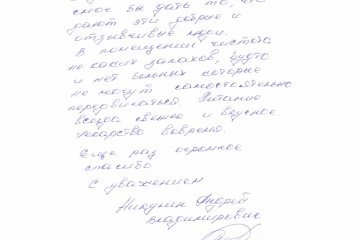 смог бы дать то, что
дают эти добрые и
отзывчивые люди.
В помещении чистота
не каких запахов, будто
и нет больных которые
не могут самостоятельно
передвигаться. Питание
всегда свежее и вкусное
лекарство вовремя.
Еще раз огромное
спасибо
С уважением
Андрей
Владимирович